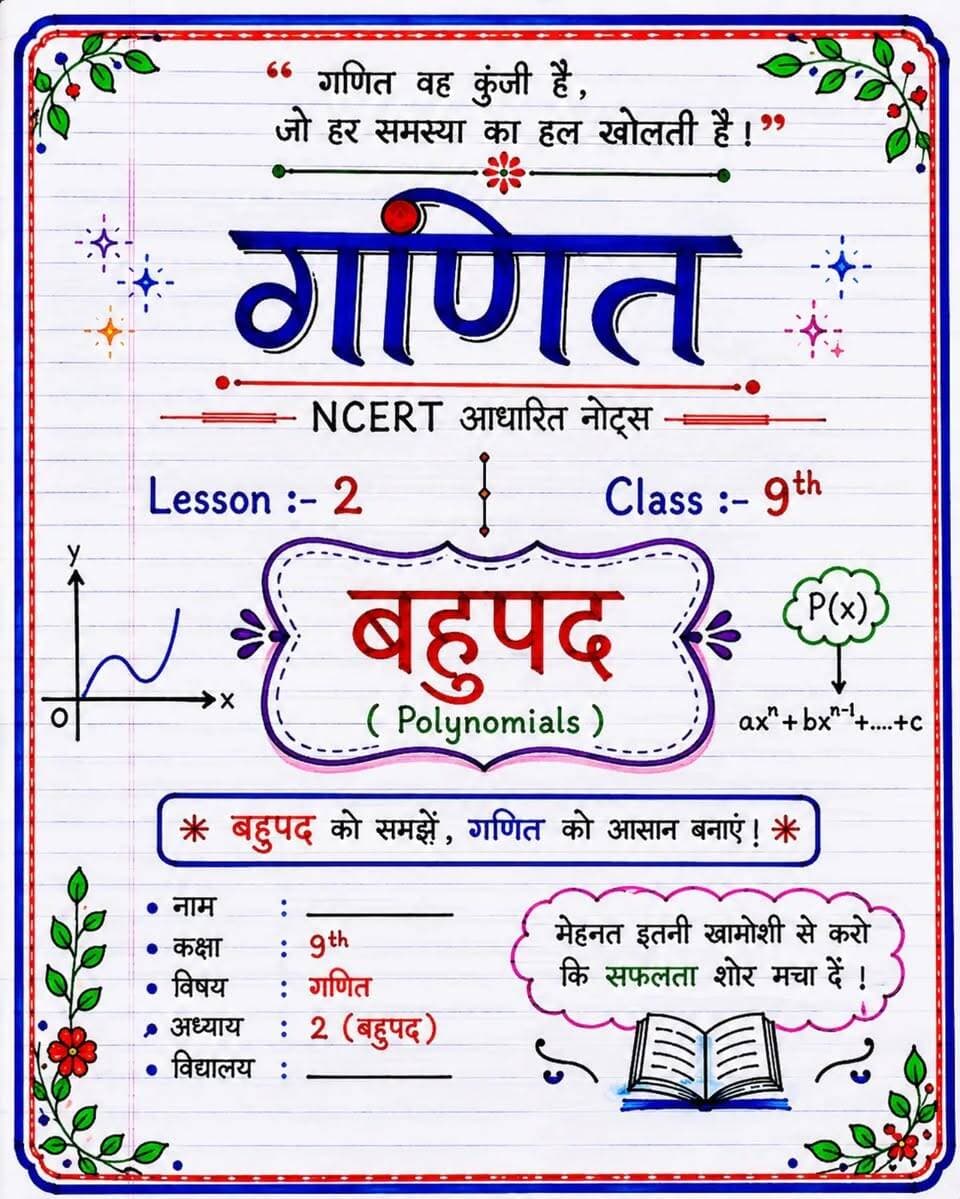 “ गणित वह कुंजी है,
जो हर समस्या का हल खोलती है! ”
गणित
NCERT आधारित नोट्स
Lesson :- 2
Class :- 9th
y
x
O
बहुपद
( Polynomials )
P(x)
axⁿ + bxⁿ⁻¹ +....+c
बहुपद को समझें, गणित को आसान बनाएं!
• नाम :
• कक्षा : 9th
• विषय : गणित
• अध्याय : 2 (बहुपद)
• विद्यालय :
मेहनत इतनी खामोशी से करो
कि सफलता शोर मचा दें !